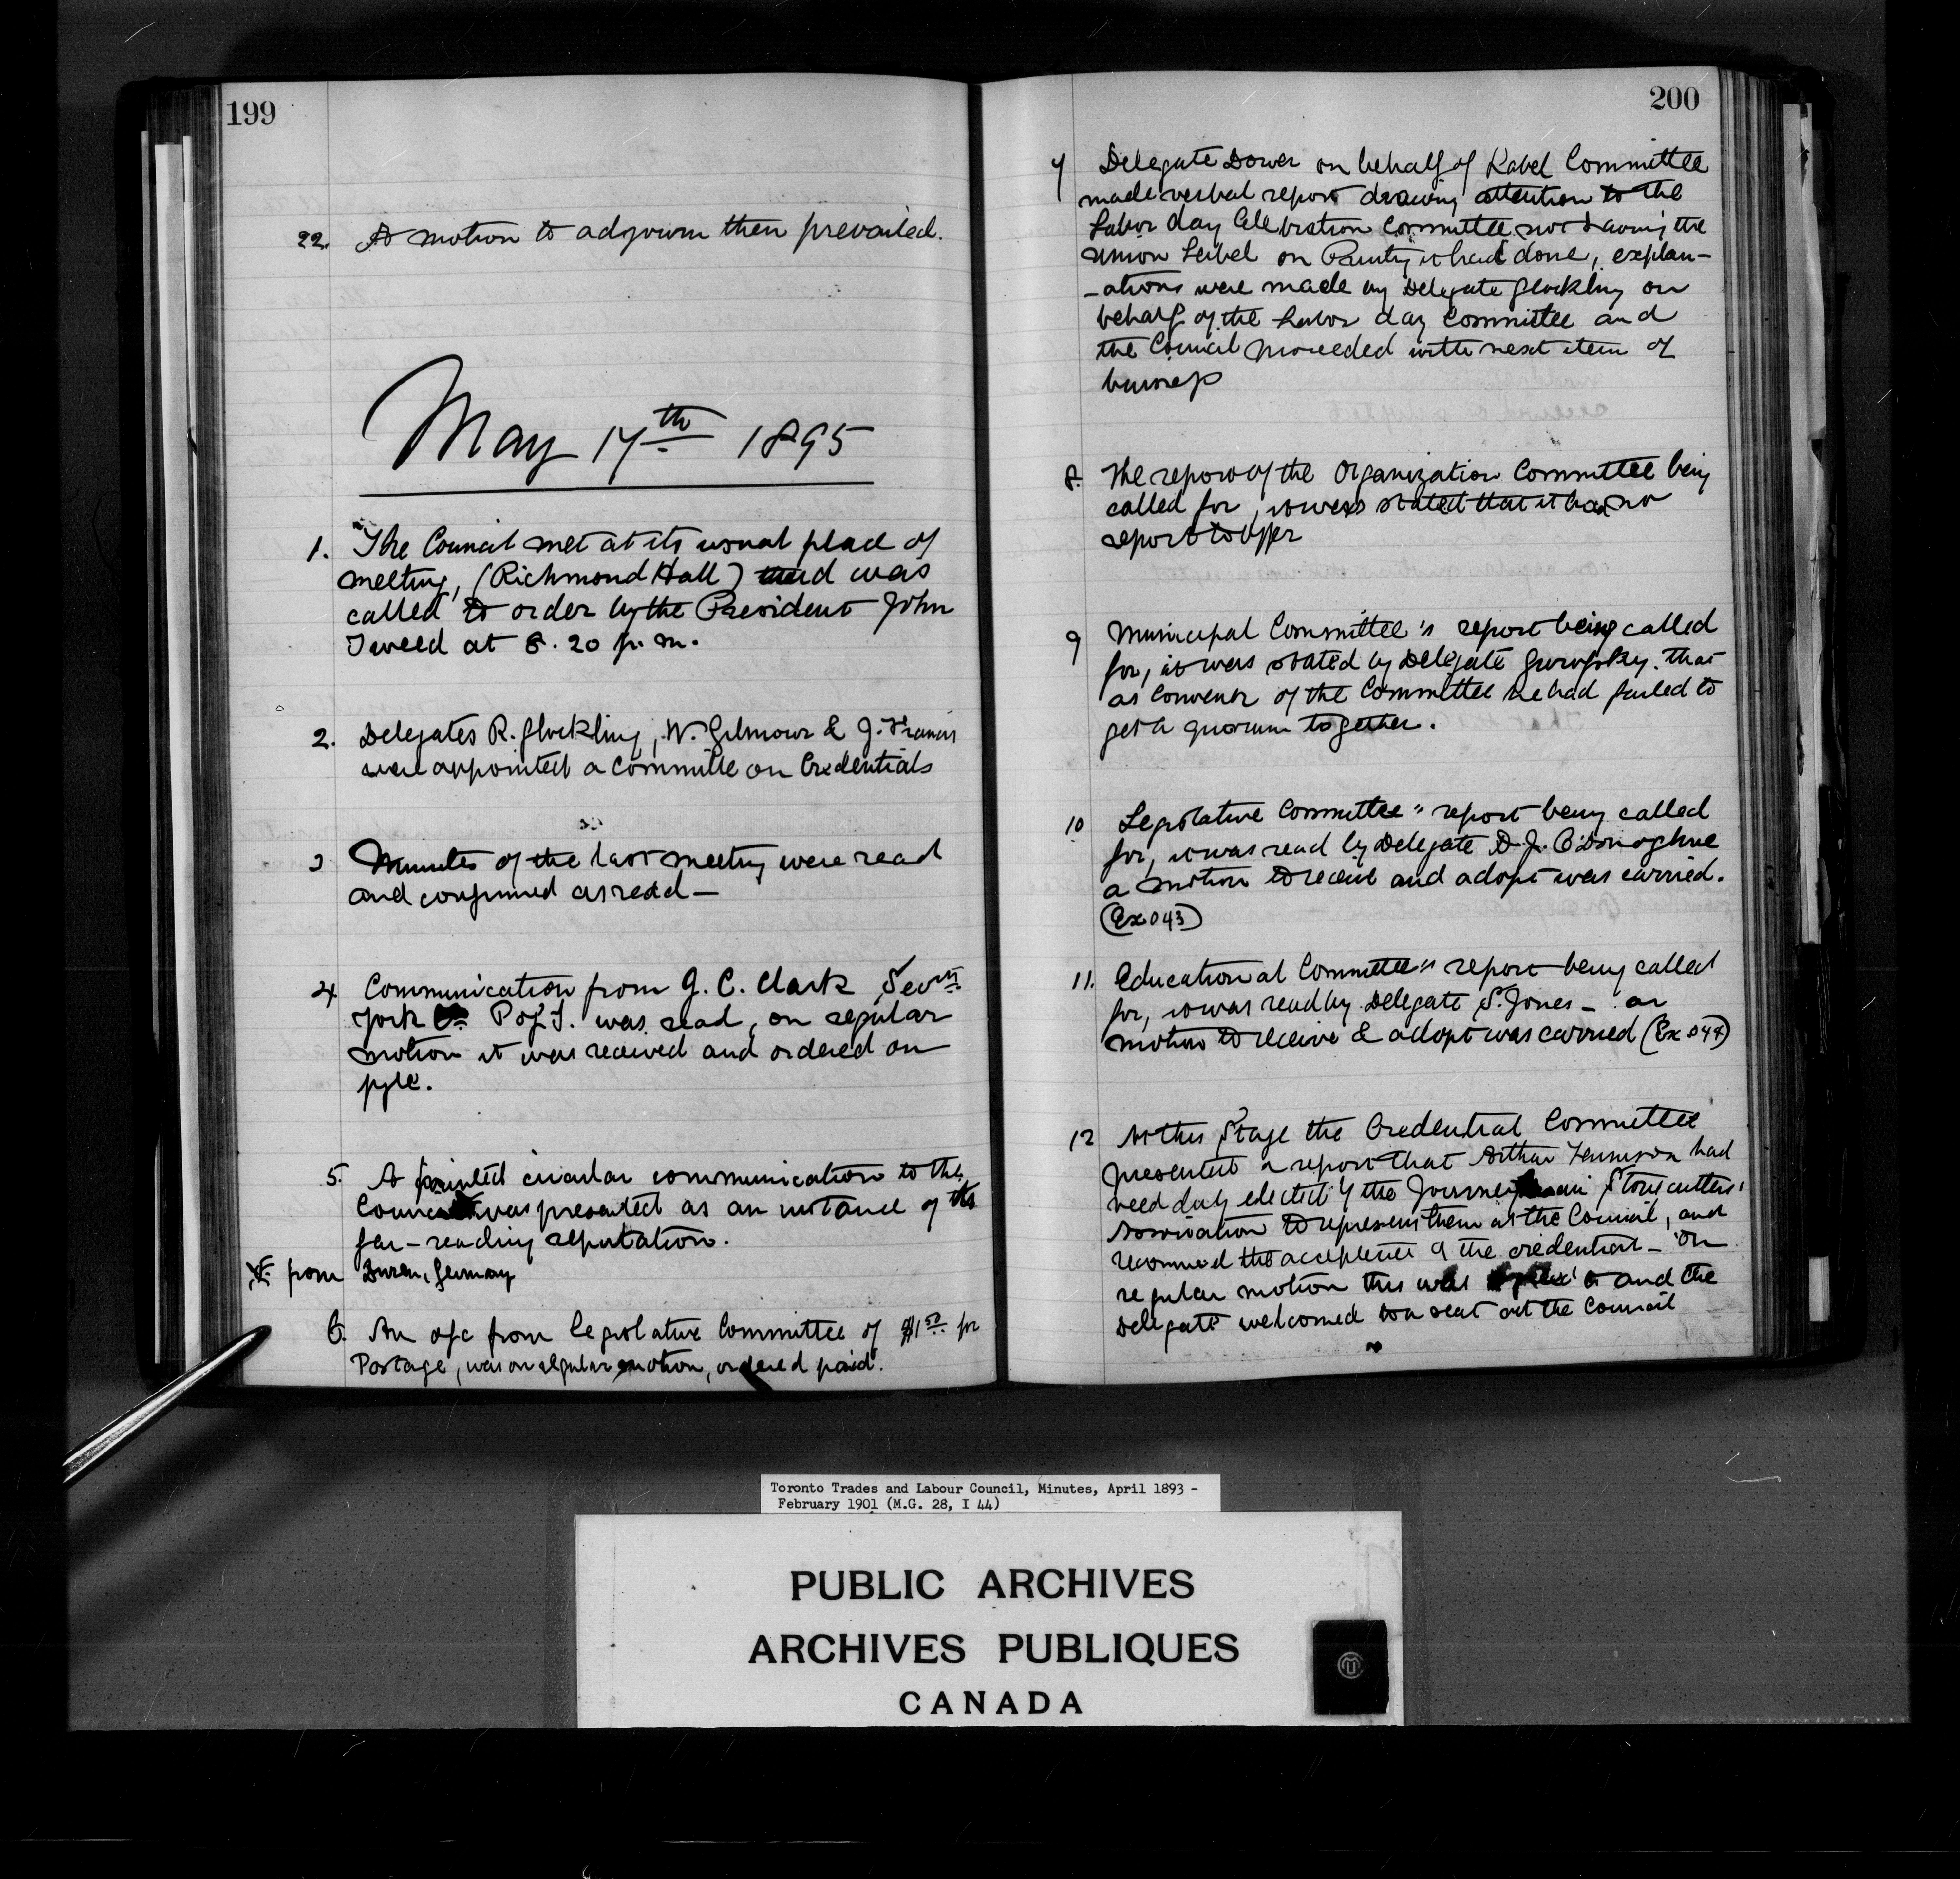 199
22. A motion to adjourn then prevailed.
May 17th 1895
1. The Council met at its usual place of
meeting, (Richmond Hall) and was
called to order by the President John
Tweed at 8.20 p.m.
2. Delegates R. Glockling, W. Gilmour & J. Francis
were appointed a committe on Credentials
3 Minutes of the last meeting were read
and confirmed as read —
4 Communication from J. C. Clark Secty
York Co. P of I. was read, on regular
motion it was received and ordered on
fyle.
5. A printed circular communication to the
Council was presented as an instance of its
far-reaching reputation.
from Duren, Germany
6. An a/c from Legislative Committee of $1.50 for
Postage, was on regular motion, ordered paid.
200
7 Delegate Dower on behalf of Label Committee
made verbal report drawing attention to the
Labor day Celebration Committee not having the
Union Label on Printing it had done, explan-
-ations were made by Delegate Glockling on
behalf of the Labor day Committee and
the Council proceeded with next item of
business
8. The report of the Organization Committee being
called for, it was stated that it had no
report to offer
9 Municipal Committee's report being called
for, it was stated by Delegate Gurofsky. that
as Convenor of the Committee he had failed to
get a quorum together.
10 Legislative Committee" report being called
for, it was read by Delegate D. J. O'Donoghue
a motion to receive and adopt was carried.
(Ex 043)
11. Educational Committee" report being called
for, it was read by Delegate S. Jones — a
motion to receive & adopt was carried (Ex 044)
12 At this Stage the Credential Committee
presented a report that Arthur had
been duly elected by the Journeymen Stonecutters'
Association to represent them at the Council, and
recommend the acceptance of the credential — On
regular motion this was and the
Delegate welcomed to a seat at the Council
Toronto Trades and Labour Council, Minutes, April 1893 -
February 1901 (M.G. 28, I 44)
PUBLIC ARCHIVES
ARCHIVES PUBLIQUES
CANADA